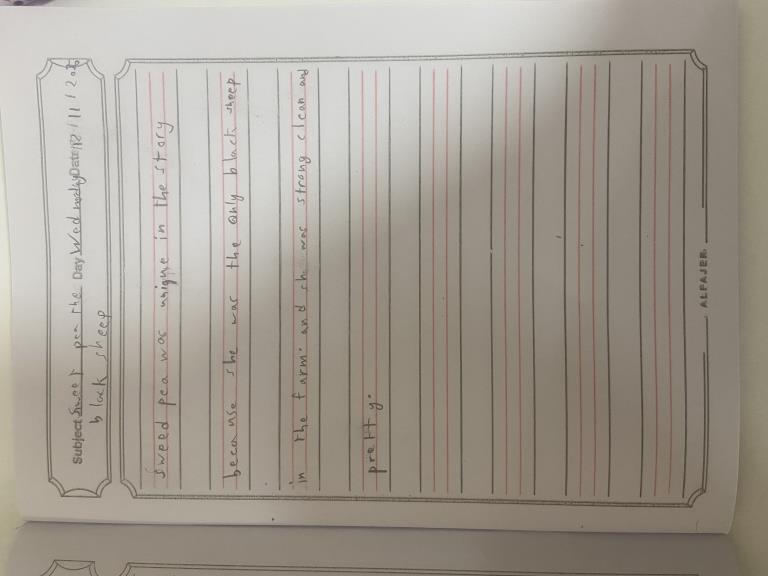 Subject Sweet pea the Day Wednesday Date 12/11/20
black sheep
sweed pea was unique in the story
because she was the only black sheep
in the farm. and she was strong clean and
pretty.
ALFAJER